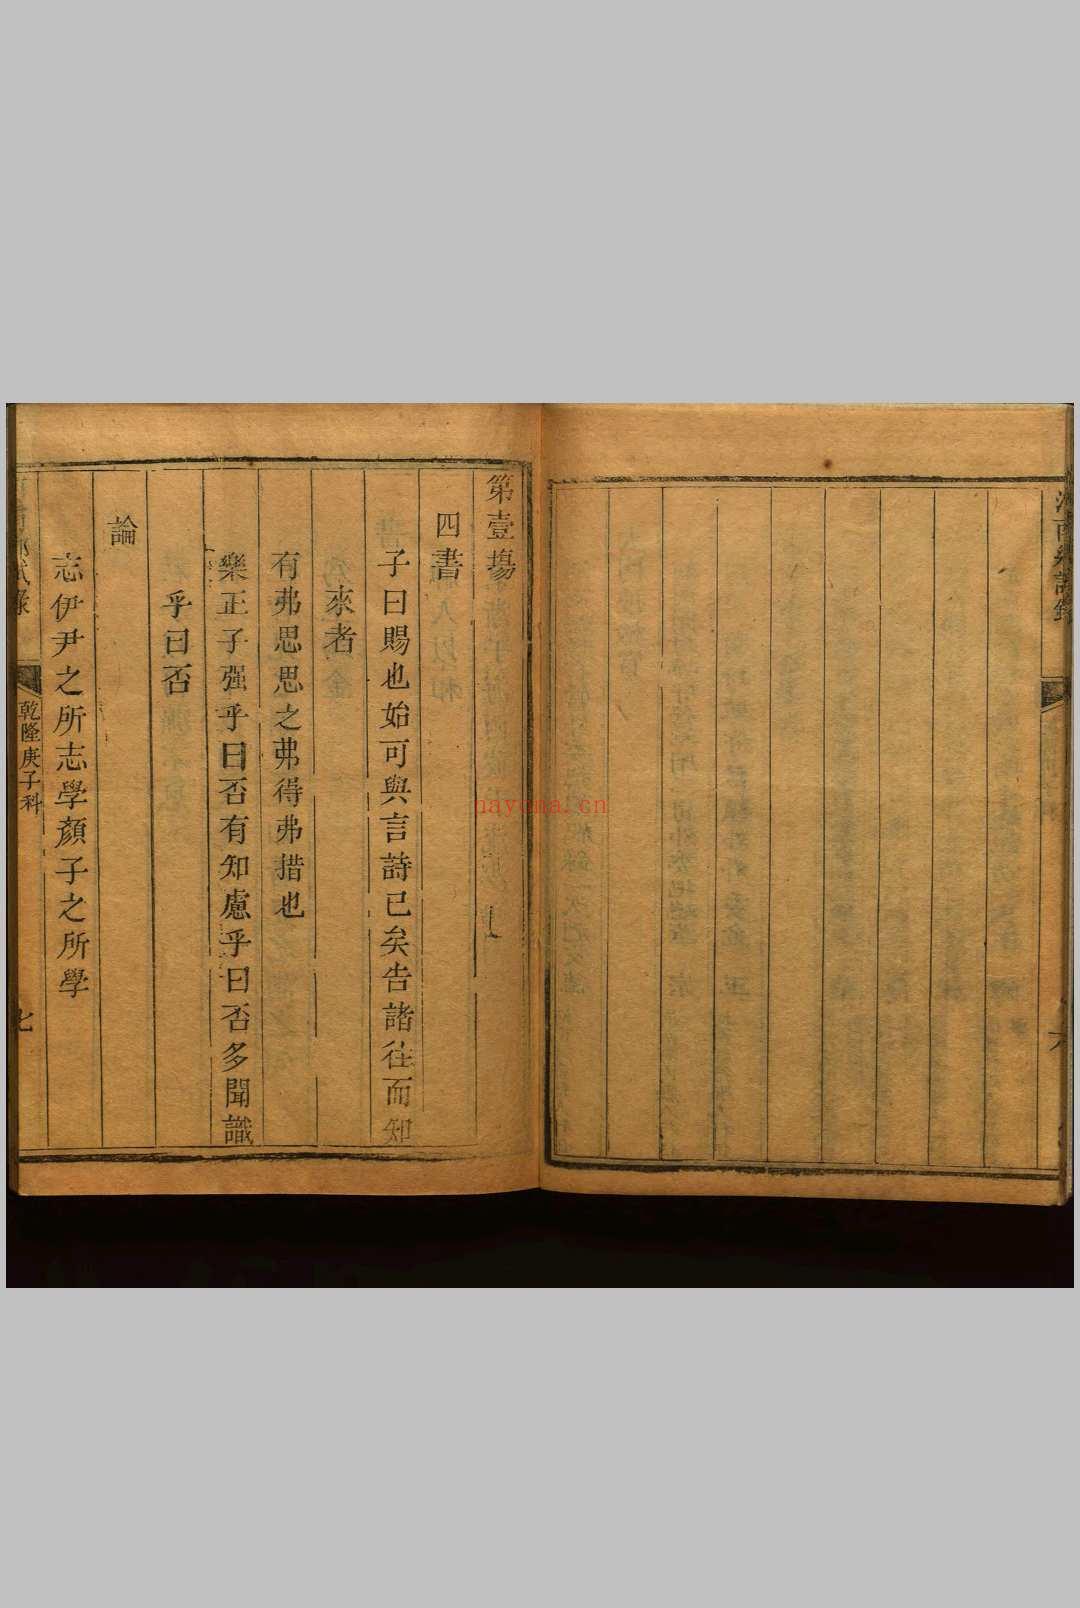 第壹場
四書
子曰賜也始可與言詩已矣告諸往而知
來者
有弗思思之弗得弗措也
樂正子强乎曰否有知慮乎曰否多聞識
乎曰否
論
志伊尹之所志學顏子之所學
乾隆庚子科
七
nayona.cn